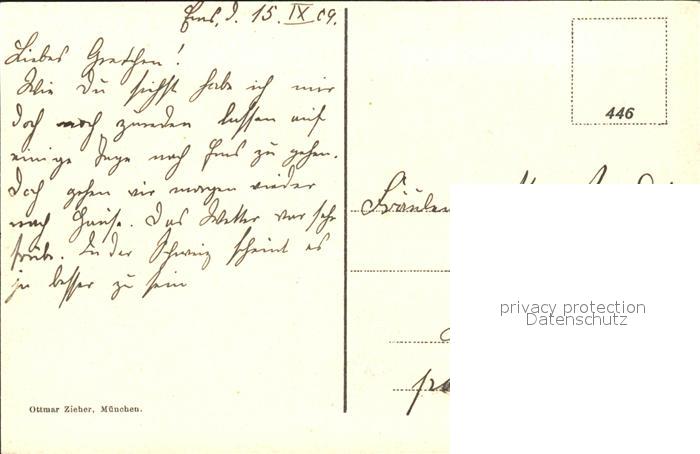 Ems, d. 15. IX 09.
Liebes Gretchen!
Wie Du siehst habe ich mir
doch noch zureden lassen auf
einige Tage nach Ems zu gehen.
Doch gehen wir morgen wieder
nach Hause. Das Wetter war sehr
trüb. In der Schweiz scheint es
ja besser zu sein
Ottmar Zieher, München.
446
Fräulein
privacy protection
Datenschutz